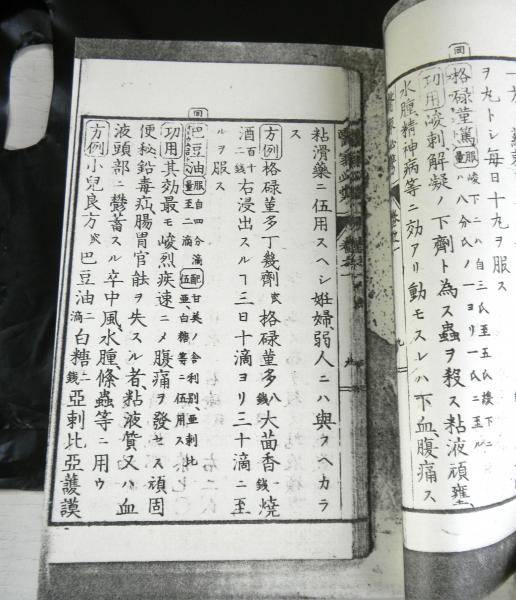 ヲ丸トシ毎日十丸ヲ服ス
回格碌菫篤服量峻下ニハ自三氏至五氏緩下ニハ八分氏ノ一ヨリ一氏ニ至ル
功用峻刺解凝ノ下劑ト為ス蟲ヲ殺ス粘液頑壅、
水腫精神病等ニ効アリ動モスレハ下血、腹痛ス
粘滑藥ニ伍用スヘシ妊婦、弱人ニハ與フヘカラ
ス
方例格碌菫多丁幾劑 格碌菫多八錢大茴香一錢燒
酒百二十錢右浸出スルヿ三日十滴ヨリ三十滴ニ至
ルヲ服ス
回巴豆油服量自四分滴至二滴配伍甘美ノ舎利別、亞剌比亞、白糖等ニ伍用ス
功用其効最モ峻烈疾速ニメ腹痛ヲ發セス頑固
便秘、鉛毒疝、腸胃官能ヲ失スル者、粘液質又ハ血
液頭部ニ鬱蓄スル卒中風、水腫、條蟲等ニ用ウ
方例小兒良方 巴豆油二滴白糖二錢亞剌比亞護謨